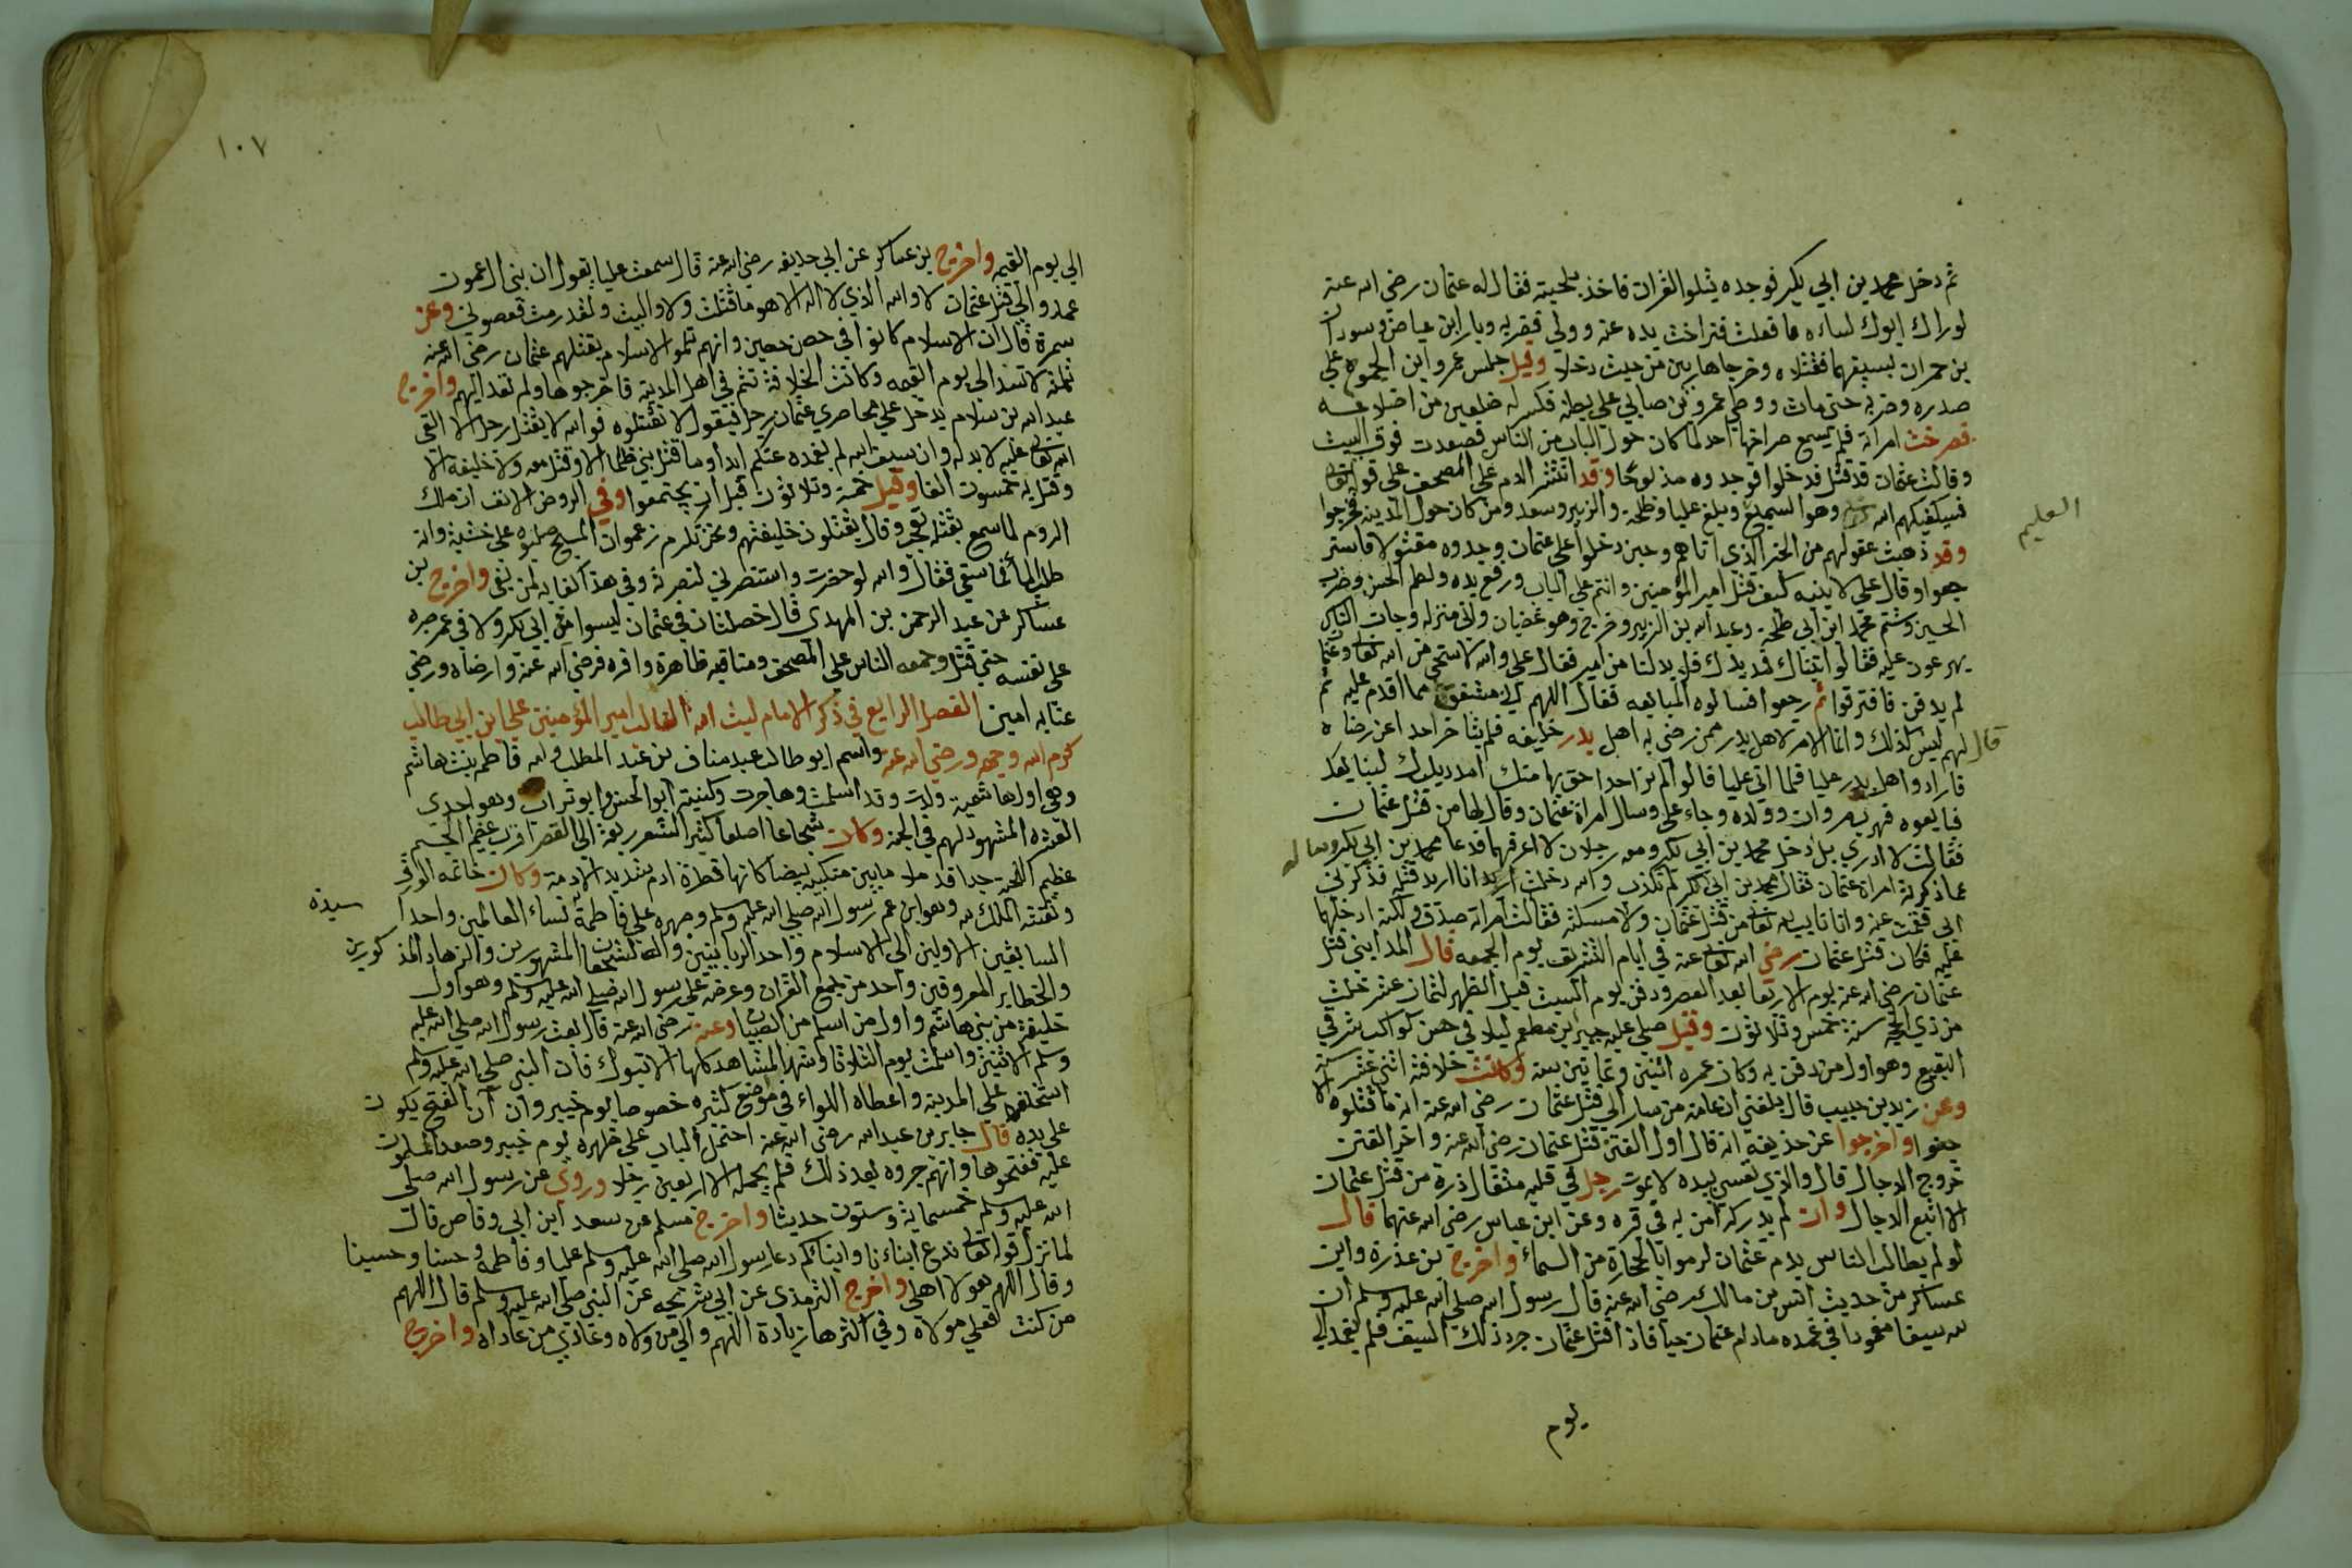 ثم دخل محمد بن ابي بكر فوجده يتلوا القران فاخذ بلحيته فقال له عثمان رضي الله عنه
لوراك ابوك لساءه ما فعلت فتراخت يده عنه وولي فضربه ويار ابن عياض وسودان
بن حمران بسيفهما فقتلاه وخرجا هاربين من حيث دخلا وقيل جلس عمرو ابن الحموح علي
صدره وضربه حتي مات ووطي عمرو بن صابي علي بطنه فكسر له ضلعين من اضلاعه
فصرخت امراته فلم يسمع صراخها احد لما كان حول الباب من الناس فصعدت فوق البيت
وقالت عثمان قد قتل فدخلوا فوجدوه مذبوحا وقد انتثر الدم علي المصحف علي قوله تعا
فسيكفيكهم الله وهو السميع وبلغ عليا وطلحة والزبير وسعد ومن كان حول المدينه فخرجوا
العليم
وقد ذهبت عقولهم من الخبر الذي اتاهم وحين دخلوا علي عثمان وجدوه مقتولا فاستر
جعوا وقال علي لابنيه كيف قتل امير المؤمنين وانتم علي الباب ورفع يده ولطم الحسن وضرب
الحسين وشتم محمد ابن ابي طلحة وعبد الله بن الزبير وخرج وهو غضبان واتي منزله وجات الناس
يهرعون عليه فقالوا اتيناك فمد يدك فلابد لنا من امير فقال علي والله لا ستحي من الله تعالي وعثما
لم يدفن فافترقوا ثم رجعوا فسالوه المبايعه فقال اللهم اني مشفق مما اقدم عليه ثم
قال لهم ليس لذلك وانما الامر لاهل بدر ممن رضي به اهل بدر خليفه فلم يتاخر احد عن رضاه
فارادوا اهل بدر عليا فلما اتي عليا قالوا لم نر احدا احق بها منك امدد يدك لنبايعك
فبايعوه فهرب مروان وولده وجاء علي وسال امراة عثمان وقال لها من قتل عثمان
فقالت لا ادري بل دخل محمد بن ابي بكر ومعه رجلان لا اعرفهما فدعا محمد بن ابي بكر وساله
عما ذكرته امراة عثمان فقال محمد بن ابي بكر لم تكذب والله دخلت اريد انا اريد قتله فذكرني
ابي فقمت عنه وانا تايب لله تعالي من قتل عثمان ولا مسكته فقالت امراته صدق ولكنه ادخلهما
عليه فكان قتل عثمان رضي الله تعالي عنه في ايام التشريق يوم الجمعه قال المدايني قتل
عثمان رضي الله عنه يوم الاربعا بعد العصر ودفن يوم السبت قبل الظهر لثمان عشر خلت
من ذي الحجه سنة خمس وثلاثون وقيل صلي عليه جبير بن مطعم ليلا في حسن كواكب شرقي
البقيع وهو اول من دفن به وكان عمره اثنين وثمانين سنة وكانت خلافته اثني عشر سنة
وعن زيد بن حبيب قال بلغني ان عامة من سار الي قتل عثمان رضي الله عنه انه ما قتلوه الا
جنوا واخرجوا عن حذيفه انه قال اول الفتن قتل عثمان رضي الله عنه واخر الفتن
خروج الدجال قال والذي نفسي بيده لا يموت رجل في قلبه مثقال ذرة من قتل عثمان
الا اتبع الدجال وان لم يدركه امن به في قبره وعن ابن عباس رضي الله عنهما قال
لو لم يطالب الناس بدم عثمان لرموا بالحجارة من السماء واخرج بن عذرة وابن
عساكر من حديث انس بن مالك رضي الله عنه قال رسول الله صلي الله عليه وسلم ان
لله سيفا مغمودا في غمده مادام عثمان حيا فاذا قتل عثمان جرد ذلك السيف فلم يغمد الي
يوم
١٠٧
الي يوم القيمه واخرج بن عساكر عن ابي حديفه رضي الله عنه قال سمعت عليا يقول ان بني العموت
عمدوا الي قتل عثمان لا والله الذي لا اله الا هو ما قتلت ولا واليت ولقد رمت فعصوني وعن
سمرة قال ان الاسلام كانوا في حصن حصين وانهم ثلموا الاسلام بقتلهم عثمان رضي الله عنه
ثلمة لا تسد الي يوم القيمه وكانت الخلافة تتم في اهل المدينه فاخرجوها ولم تعد اليهم واخرج
عبد الله بن سلام يدخل علي محاصري عثمان رجل فيقول لا تقتلوه فوالله لا يقتل رجل الا لقي
الله تعالي عليه لا يد له وان سيف الله لم يغمده عنكم ابدا وما قتل بني ظلما الا وقتل معه ولا خليفة الا
وقتل به خمسون الفا وقيل خمسة وثلاثون قبل ان يجتمعوا وفي الروض الانف ان ملك
الروم لما سمع بقتله تعجب وقال يقتلون خليفتهم ونحن نكرم زعموا ان المسيح صلبوه علي خشبة وانه
طلب الما فما سقي فقال والله لو حضرت واستنصرني لنصرته وفي هذا كفايه لمن بقي واخرج بن
عساكر عن عبد الرحمن بن المهدي قال خصلتان في عثمان ليسوا في ابي بكر ولا في عمر صبره
علي نفسه حتي قتل وجمعه الناس علي المصحف ومناقبه ظاهرة وافره فرضي الله عنه وارضاه ورضي
عنا به امين الفصل الرابع في ذكر الامام ليث الله الغالب امير المؤمنين علي ابن ابي طالب
كرم الله وجهه ورضي الله عنه واسم ابو طالب عبد مناف بن عبد المطلب وامه فاطمه بنت هاشم
وهي اول هاشمية ولدت وقد اسلمت وهاجرت وكنيته ابو الحسن وابو تراب وهو احدي
العشره المشهود لهم في الجنه وكان شجاعا اصلعا كثير الشعر ربعة الي القصر اقرب عظيم الجسم
عظيم اللحية جدا قد ملا ما بين منكبيه بيضا كانها قطرة ادم شديد الادمة وكان خاتمه الورقي
ونقشه الملك لله وهو ابن عم رسول الله صلي الله عليه وسلم وصهره علي فاطمة نساء العالمين واحد ا
سيدة
السابقين الاولين الي الاسلام واحد الربانيين والشجعان المشهورين والزهاد المذ كورين
والخطاير المعروفين واحد من جمع القران وعرضه علي رسول الله صلي الله عليه وسلم وهو اول
خليفة من بني هاشم واول من اسلم من الصبيان وعنه رضي الله عنه قال بعث رسول الله صلي الله عليه
وسلم الاثنين واسلمت يوم الثلاثا وشهد المشاهد كلها الا تبوك فان النبي صلي الله عليه وسلم
استخلفه علي المدينه واعطاه اللواء في مواضع كثيره خصوصا يوم خيبر وان ان الفتح يكون
علي يده قال جابر بن عبد الله رضي الله عنه احتمل الباب علي ظهره يوم خيبر وصعد المسلمون
عليه ففتحوها وانهم جروه بعد ذلك فلم يحمله الا اربعين رجلا وروي عن رسول الله صلي
الله عليه وسلم خمسماية وستون حديثا واخرج مسلم عن سعد ابن ابي وقاص قال
لما نزل قوله تعالي ندع ابناءنا وابناكم دعا رسول الله صلي الله عليه وسلم عليا وفاطمة وحسنا وحسينا
وقال اللهم هولا اهلي واخرج الترمذي عن ابي شريحه عن النبي صلي الله عليه وسلم قال اللهم
من كنت فعلي مولاه وفي اكثرها زيادة اللهم والي من ولاه وعادي من عاداه واخرج